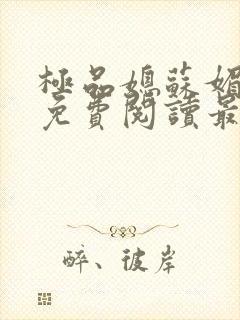 極品媳蘇媚
免費閱讀最
醉、彼岸